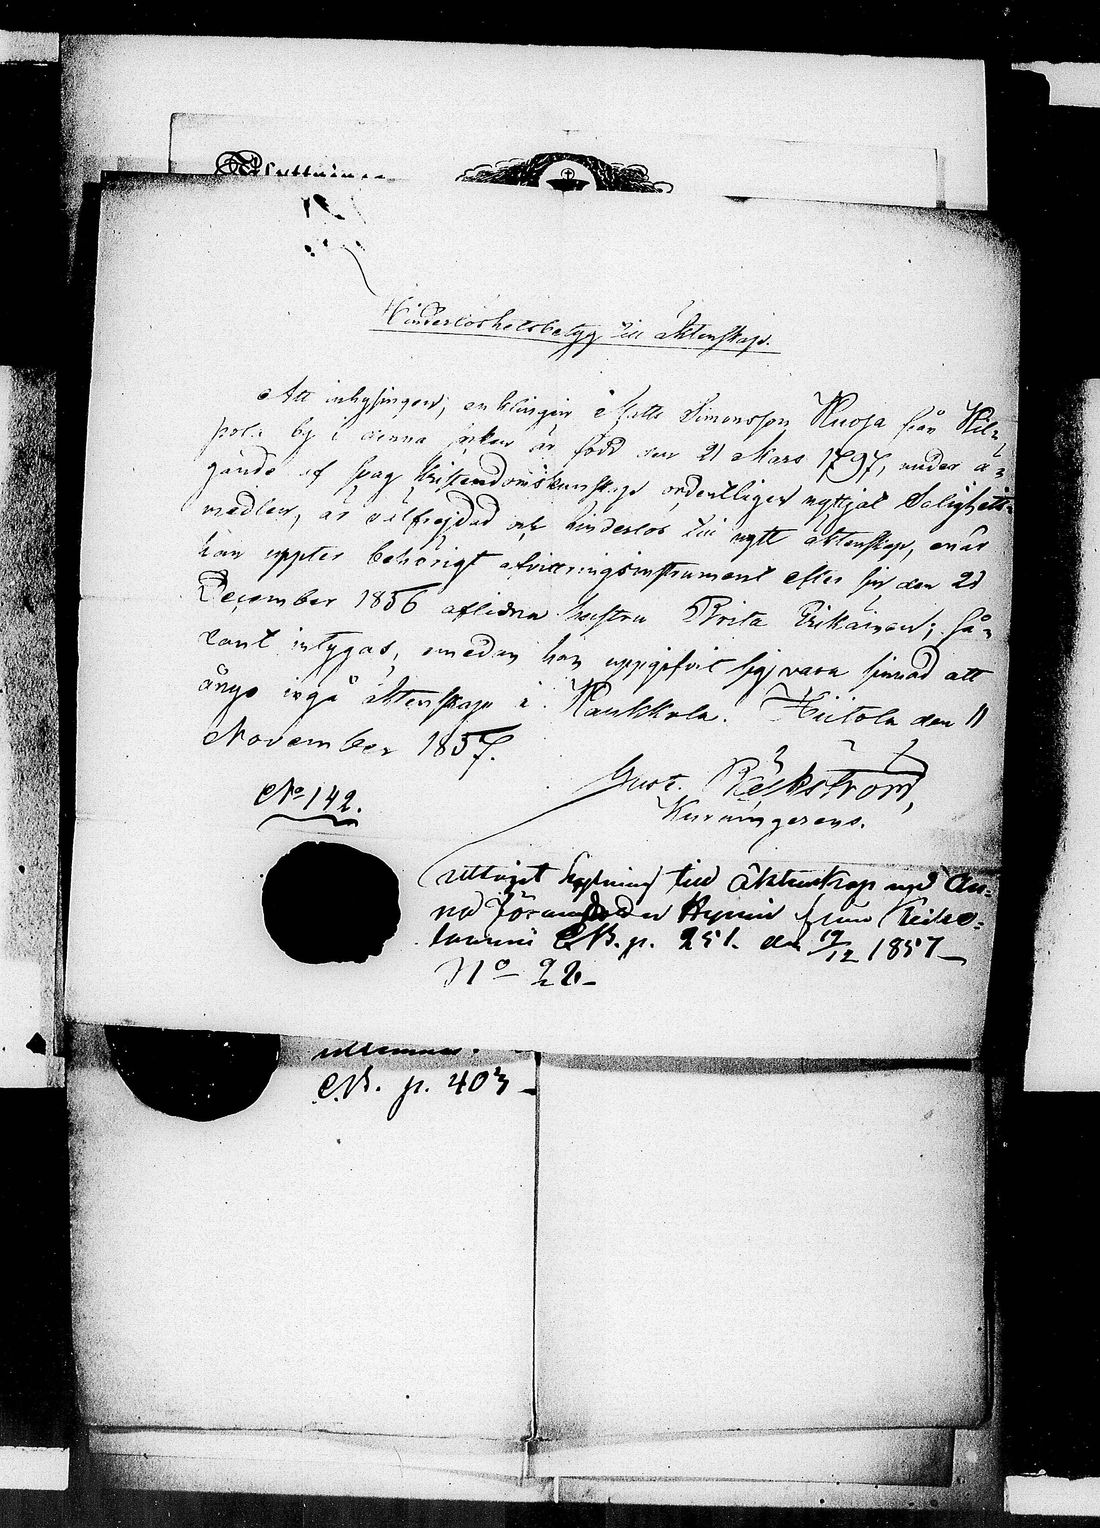 Flyttnings
Hinderlöshetsbetyg till äktenskap.
Att inhysingen, enklingen Matts Simonsson Kuosa från Kil-
pola by i denna socken är född den 21 Mars 1797, under å-
gande af svag kristendomskunskap ordentligen nyttjat Salighets-
medlen, är välfrejdad och hinderlös till nytt äktenskap, enär
han uppter behörigt afvittringsinstrument efter sin den 21
December 1856 aflidna hustru Brita Erikäinen; så-
dant intygas, emedan han uppgifvit sig vara sinnad att
ingå äktenskap i Kaukkola. Hiitola den 11
November 1857.
Gust. Räfkström,
No 142.
uttagit lysning till äktenskap med An-
na Göransdotter Hym från
C.B. p. 251. den 19/12 1857
No 22.
C.B. p. 403